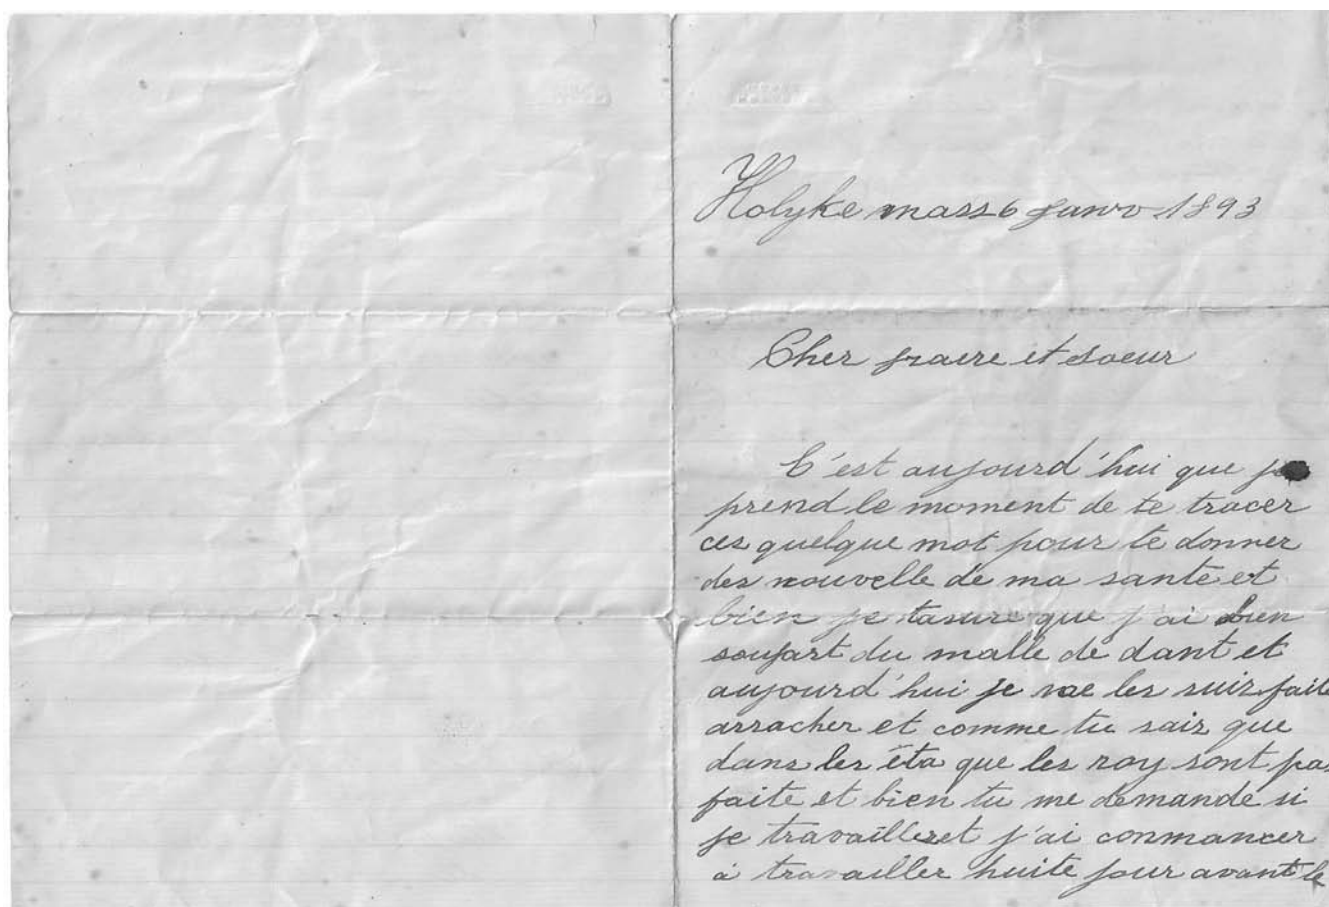 Holyke mass 6 janv 1893
Cher fraere et soeur
C'est aujourd'hui que je
prend le moment de te tracer
ces quelque mot pour te donner
des nouvelle de ma sante et
bien je tasure que j'ai bien
soufart du malle de dant et
aujourd'hui je me les suis faite
arracher et comme tu sais que
dans les éta que les roy sont pas
faite et bien tu me demande si
je travailleret j'ai conmancer
à travailler huite jour avant le